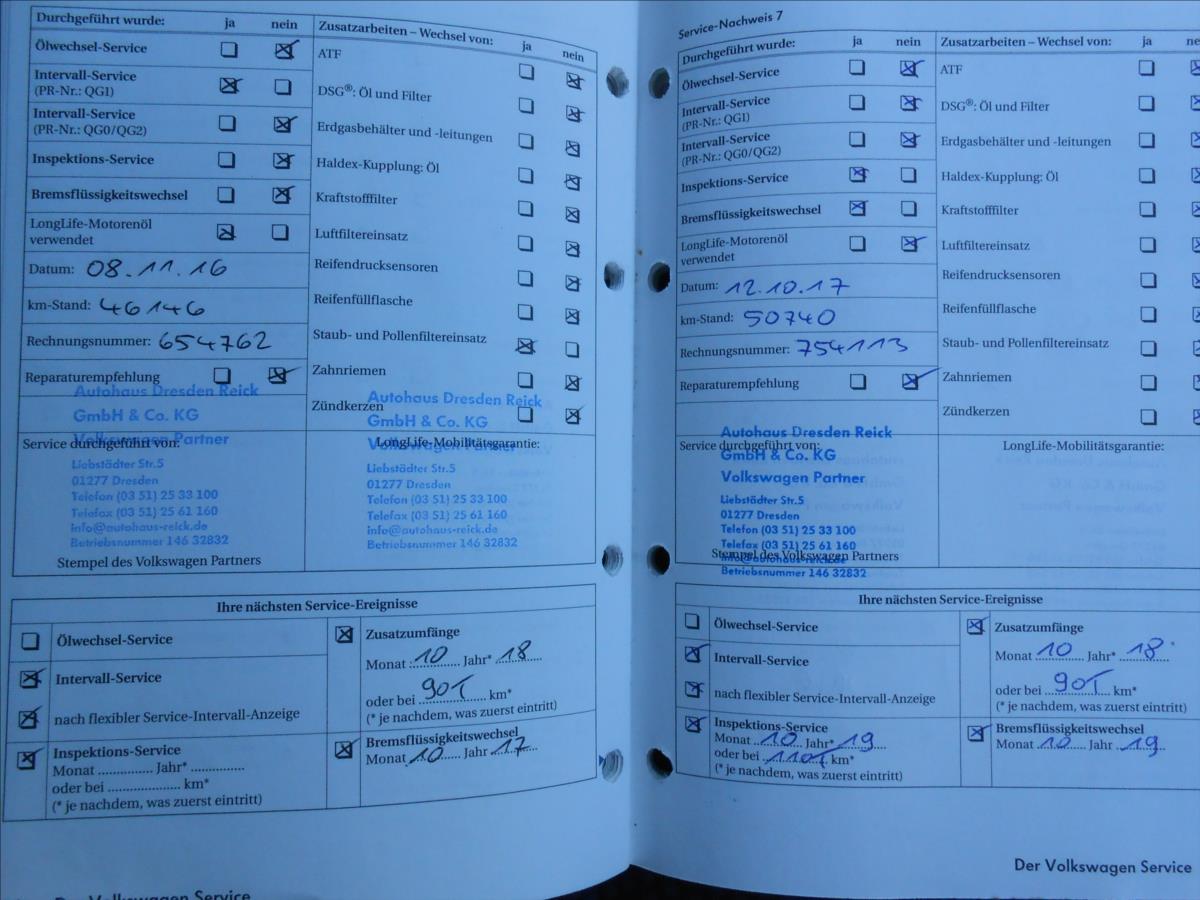 Durchgeführt wurde: ja nein
Ölwechsel-Service
Intervall-Service
(PR-Nr.: QG1)
Intervall-Service
(PR-Nr.: QG0/QG2)
Inspektions-Service
Bremsflüssigkeitswechsel
LongLife-Motorenöl
verwendet
Datum: 08.11.16
km-Stand: 46146
Rechnungsnummer: 654762
Reparaturempfehlung
Zusatzarbeiten – Wechsel von: ja nein
ATF
DSG®: Öl und Filter
Erdgasbehälter und -leitungen
Haldex-Kupplung: Öl
Kraftstofffilter
Luftfiltereinsatz
Reifendrucksensoren
Reifenfüllflasche
Staub- und Pollenfiltereinsatz
Zahnriemen
Zündkerzen
Service durchgeführt von:
Autohaus Dresden Reick
GmbH & Co. KG
Volkswagen Partner
Liebstädter Str.5
01277 Dresden
Telefon (03 51) 25 33 100
Telefax (03 51) 25 61 160
info@autohaus-reick.de
Betriebsnummer 146 32832
Stempel des Volkswagen Partners
LongLife-Mobilitätsgarantie:
Autohaus Dresden Reick
GmbH & Co. KG
Volkswagen Partner
Liebstädter Str.5
01277 Dresden
Telefon (03 51) 25 33 100
Telefax (03 51) 25 61 160
info@autohaus-reick.de
Betriebsnummer 146 32832
Ihre nächsten Service-Ereignisse
Ölwechsel-Service
Intervall-Service
nach flexibler Service-Intervall-Anzeige
Inspektions-Service
Monat .............. Jahr* ..............
oder bei ................... km*
(* je nachdem, was zuerst eintritt)
Zusatzumfänge
Monat 10 Jahr* 18
oder bei 90T km*
(* je nachdem, was zuerst eintritt)
Bremsflüssigkeitswechsel
Monat 10 Jahr 17
Der Volkswagen Service
Service-Nachweis 7
Durchgeführt wurde: ja nein
Ölwechsel-Service
Intervall-Service
(PR-Nr.: QG1)
Intervall-Service
(PR-Nr.: QG0/QG2)
Inspektions-Service
Bremsflüssigkeitswechsel
LongLife-Motorenöl
verwendet
Datum: 12.10.17
km-Stand: 50740
Rechnungsnummer: 754113
Reparaturempfehlung
Zusatzarbeiten – Wechsel von: ja
ATF
DSG®: Öl und Filter
Erdgasbehälter und -leitungen
Haldex-Kupplung: Öl
Kraftstofffilter
Luftfiltereinsatz
Reifendrucksensoren
Reifenfüllflasche
Staub- und Pollenfiltereinsatz
Zahnriemen
Zündkerzen
Service durchgeführt von:
Autohaus Dresden Reick
GmbH & Co. KG
Volkswagen Partner
Liebstädter Str.5
01277 Dresden
Telefon (03 51) 25 33 100
Telefax (03 51) 25 61 160
info@autohaus-reick.de
Betriebsnummer 146 32832
Stempel des Volkswagen Partners
LongLife-Mobilitätsgarantie:
Ihre nächsten Service-Ereignisse
Ölwechsel-Service
Intervall-Service
nach flexibler Service-Intervall-Anzeige
Inspektions-Service
Monat 10 Jahr* 19
oder bei 110T km*
(* je nachdem, was zuerst eintritt)
Zusatzumfänge
Monat 10 Jahr* 18
oder bei 90T km*
(* je nachdem, was zuerst eintritt)
Bremsflüssigkeitswechsel
Monat 10 Jahr 19
Der Volkswagen Service